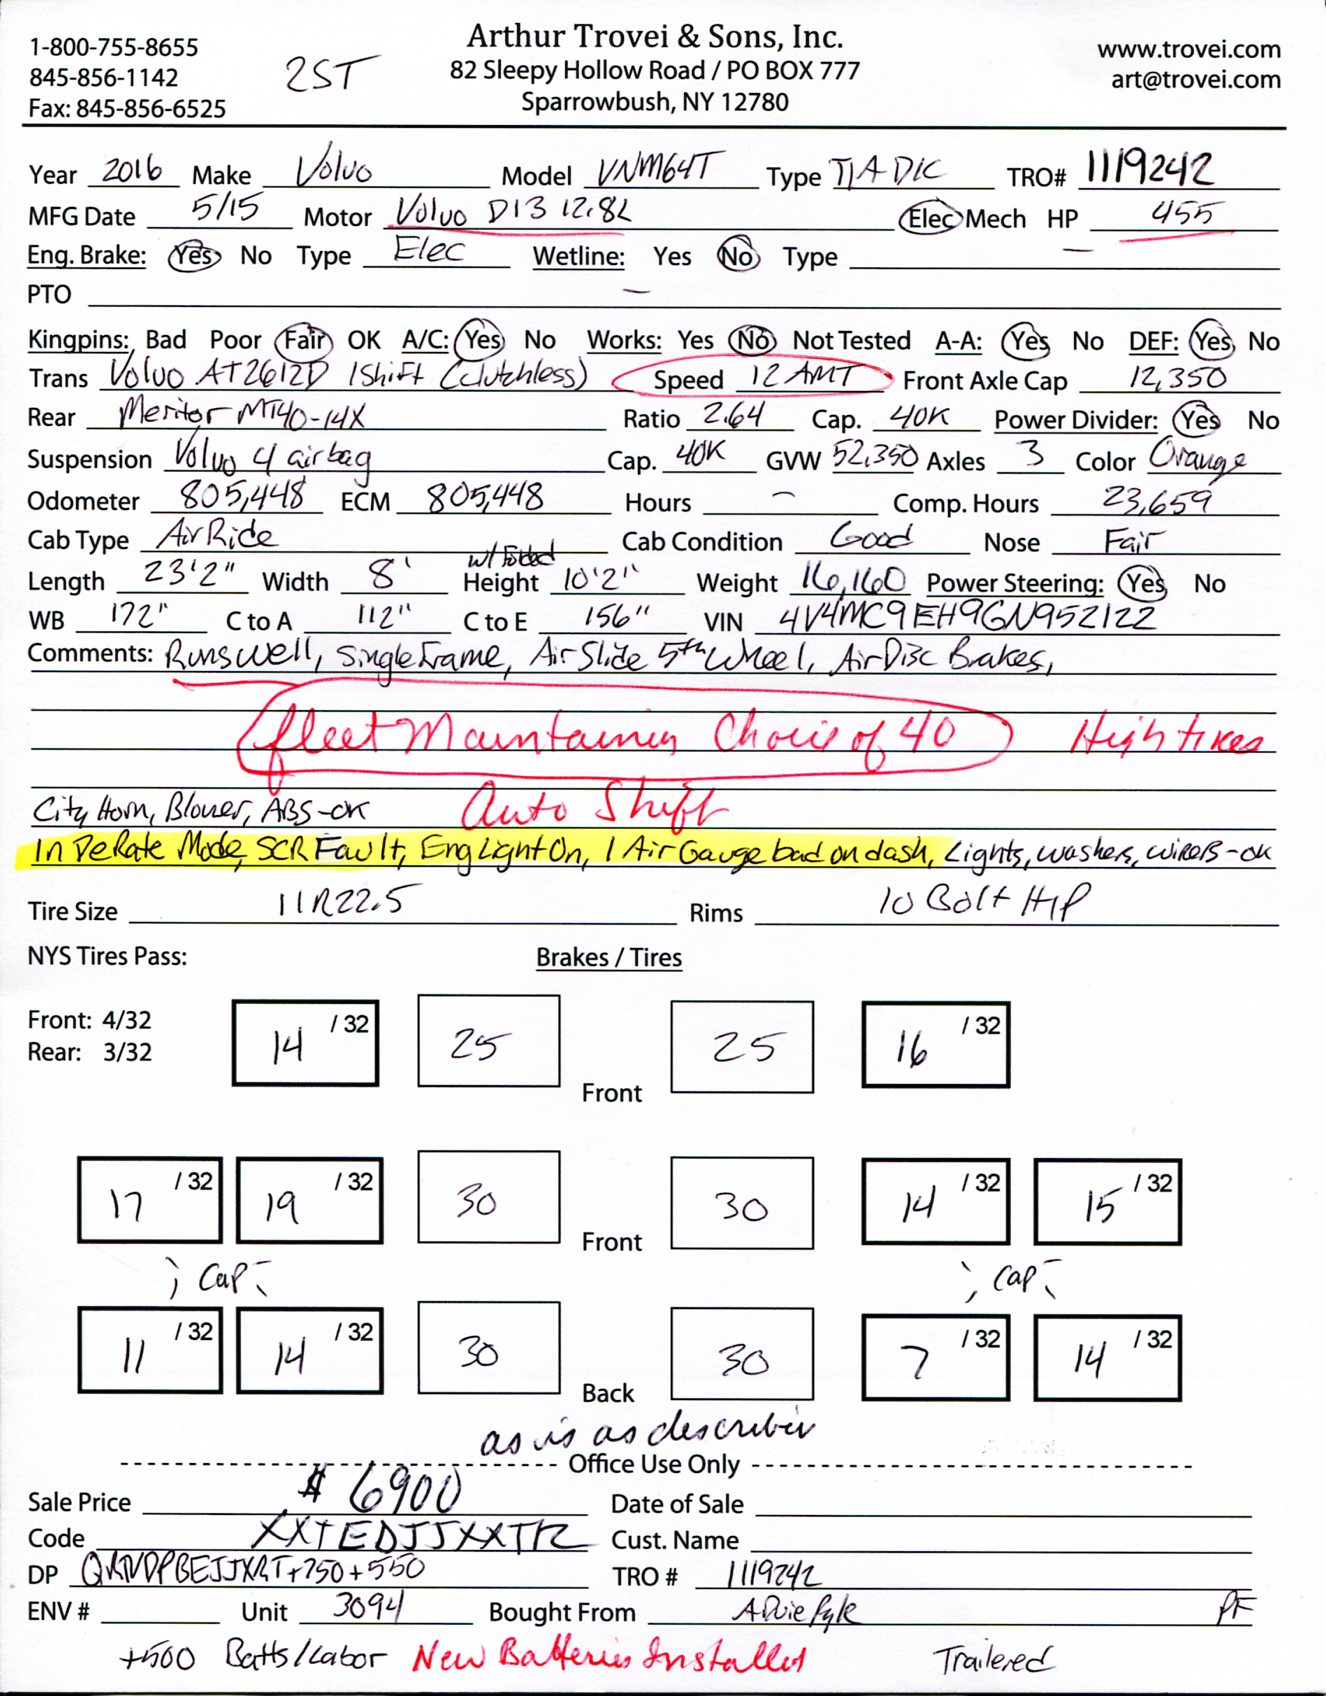 1-800-755-8655
845-856-1142
Fax: 845-856-6525
2ST
Arthur Trovei & Sons, Inc.
82 Sleepy Hollow Road / PO BOX 777
Sparrowbush, NY 12780
www.trovei.com
art@trovei.com
Year 2016 Make Volvo Model VNM64T Type T/A D/C TRO# 1119242
MFG Date 5/15 Motor Volvo D13 12.8L Elec Mech HP 455
Eng. Brake: Yes No Type Elec Wetline: Yes No Type —
PTO —
Kingpins: Bad Poor Fair OK A/C: Yes No Works: Yes No Not Tested A-A: Yes No DEF: Yes No
Trans Volvo AT2612D IShift (Clutchless) Speed 12 AMT Front Axle Cap 12,350
Rear Meritor MT40-14X Ratio 2.64 Cap. 40K Power Divider: Yes No
Suspension Volvo 4 airbag Cap. 40K GVW 52,350 Axles 3 Color Orange
Odometer 805,448 ECM 805,448 Hours — Comp. Hours 23,659
Cab Type Air Ride Cab Condition Good Nose Fair
Length 23'2" Width 8' w/ Folded Height 10'2" Weight 16,160 Power Steering: Yes No
WB 172" C to A 112" C to E 156" VIN 4V4MC9EH9GN952122
Comments: Runs Well, Single Frame, Air Slide 5th Wheel, Air Disc Brakes,
fleet Maintained Choice of 40 High tires
City Horn, Blower, ABS-OK Auto Shift
In DeRate Mode, SCR Fault, Eng Light On, 1 Air Gauge bad on dash, Lights, washers, wipers-ok
Tire Size 11R22.5 Rims 10 Bolt H/P
NYS Tires Pass: Brakes / Tires
Front: 4/32
Rear: 3/32
14 /32 25 Front 25 16 /32
17 /32 19 /32 30 Front 30 14 /32 15 /32
Cap Cap
11 /32 14 /32 30 Back 30 7 /32 14 /32
as is as described
Office Use Only
Sale Price $ 6900 Date of Sale
Code XXTEDJJXXTR Cust. Name
DP +750+550 TRO # 1119242
ENV # Unit 3094 Bought From PF
+500 Batts/Labor New Batteries Installed Trailered